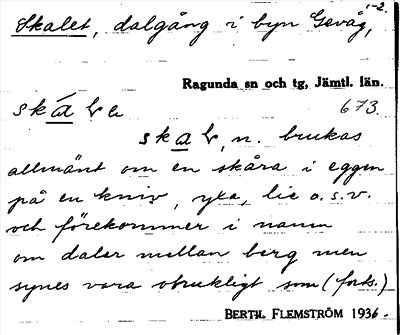 Skalet, dalgång i byn Gevåg, 1-2.
Ragunda sn och tg, Jämtl. län.
673.
skȧ
ska, n. brukas
allmänt om en skåra i eggen
på en kniv, yxa, lie o.s.v.
och förekommer i namn
om dalar mellan berg men
synes vara obrukligt som (forts.)
BERTIL FLEMSTRÖM 1936.